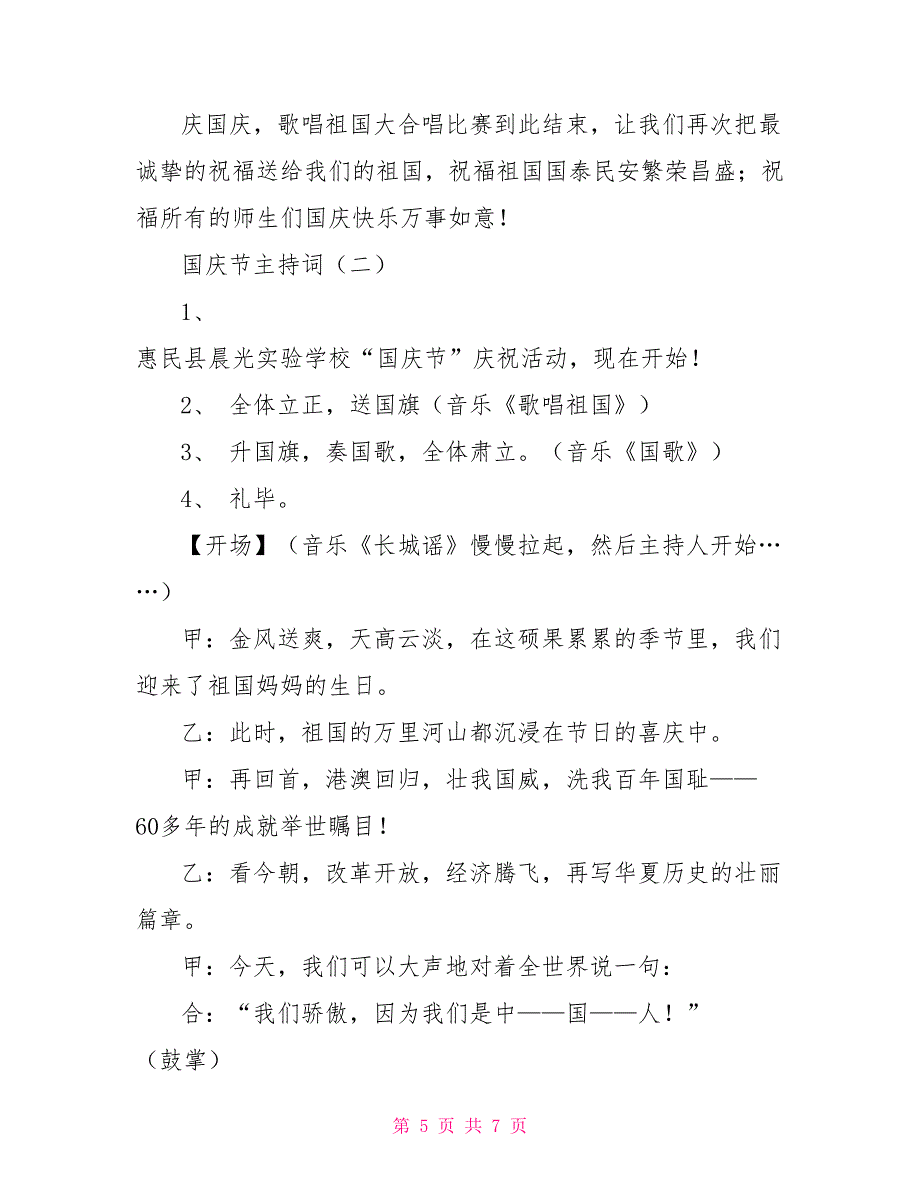 庆国庆，歌唱祖国大合唱比赛到此结束，让我们再次把最
诚挚的祝福送给我们的祖国，祝福祖国国泰民安繁荣昌盛；祝
福所有的师生们国庆快乐万事如意！
国庆节主持词（二）
1、
惠民县晨光实验学校“国庆节”庆祝活动，现在开始！
2、 全体立正，送国旗（音乐《歌唱祖国》）
3、 升国旗，奏国歌，全体肃立。（音乐《国歌》）
4、 礼毕。
【开场】（音乐《长城谣》慢慢拉起，然后主持人开始…
…）
甲：金风送爽，天高云淡，在这硕果累累的季节里，我们
迎来了祖国妈妈的生日。
乙：此时，祖国的万里河山都沉浸在节日的喜庆中。
甲：再回首，港澳回归，壮我国威，洗我百年国耻——
60多年的成就举世瞩目！
乙：看今朝，改革开放，经济腾飞，再写华夏历史的壮丽
篇章。
甲：今天，我们可以大声地对着全世界说一句：
合：“我们骄傲，因为我们是中——国——人！”
（鼓掌）
第 5 页 共 7 页